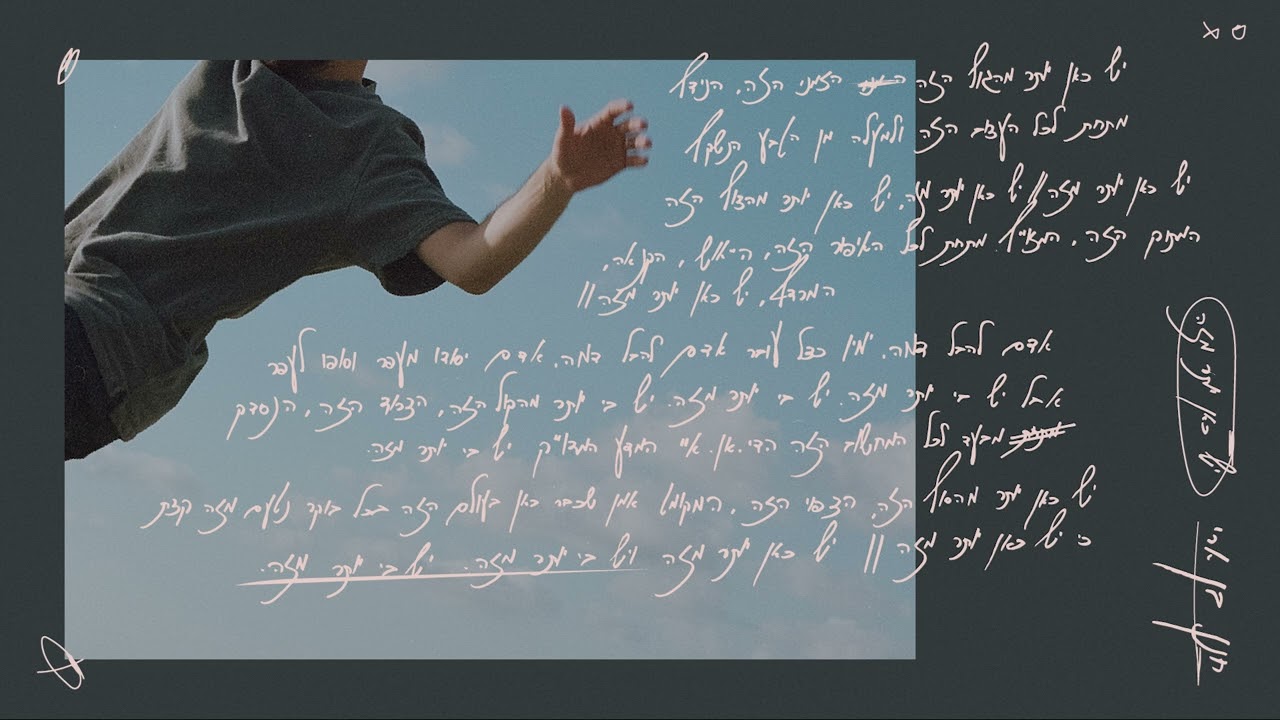 יש כאן יותר מהגוף הזה הזמני הזה, הנידף
מתחת לכל העצב הזה ולמעלה מן הטבע הנשקף
יש כאן יותר מזה // יש כאן יותר מזה. יש כאן יותר מהצוף הזה
המתוק הזה, המזוייף. מתחת לכל האיפור הזה, הייאוש, הקנאה,
המרדף, יש כאן יותר מזה //
אדם להבל דמה. ימיו כצל עובר אדם להבל דמה. אדם יסודו מעפר וסופו לעפר
אבל יש בי יותר מזה. יש בי יותר מהקול הזה, הצרוד הזה, הנסדק
מבעד לכל המחשוב הזה הדי.אן.איי המדע המדוייק יש בי יותר מזה.
יש כאן יותר מהסוף הזה, הצפוי הזה, המקומט אמן שכבר כאן בעולם הזה בכל בוקר נטעם מזה קצת
כי יש כאן יותר מזה // יש כאן יותר מזה ויש בי יותר מזה. יש בי יותר מזה.
יש כאן יותר מזה